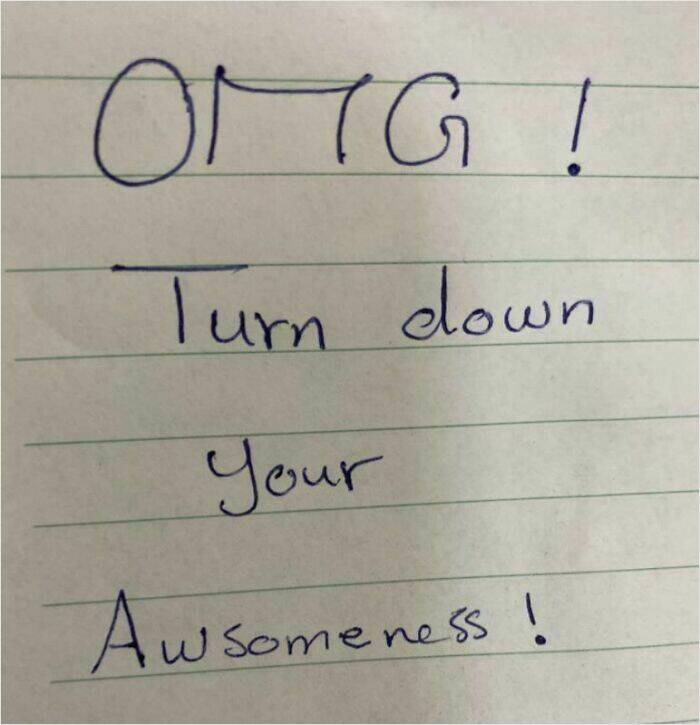 OMG !
Turn down
your
Awsomeness !